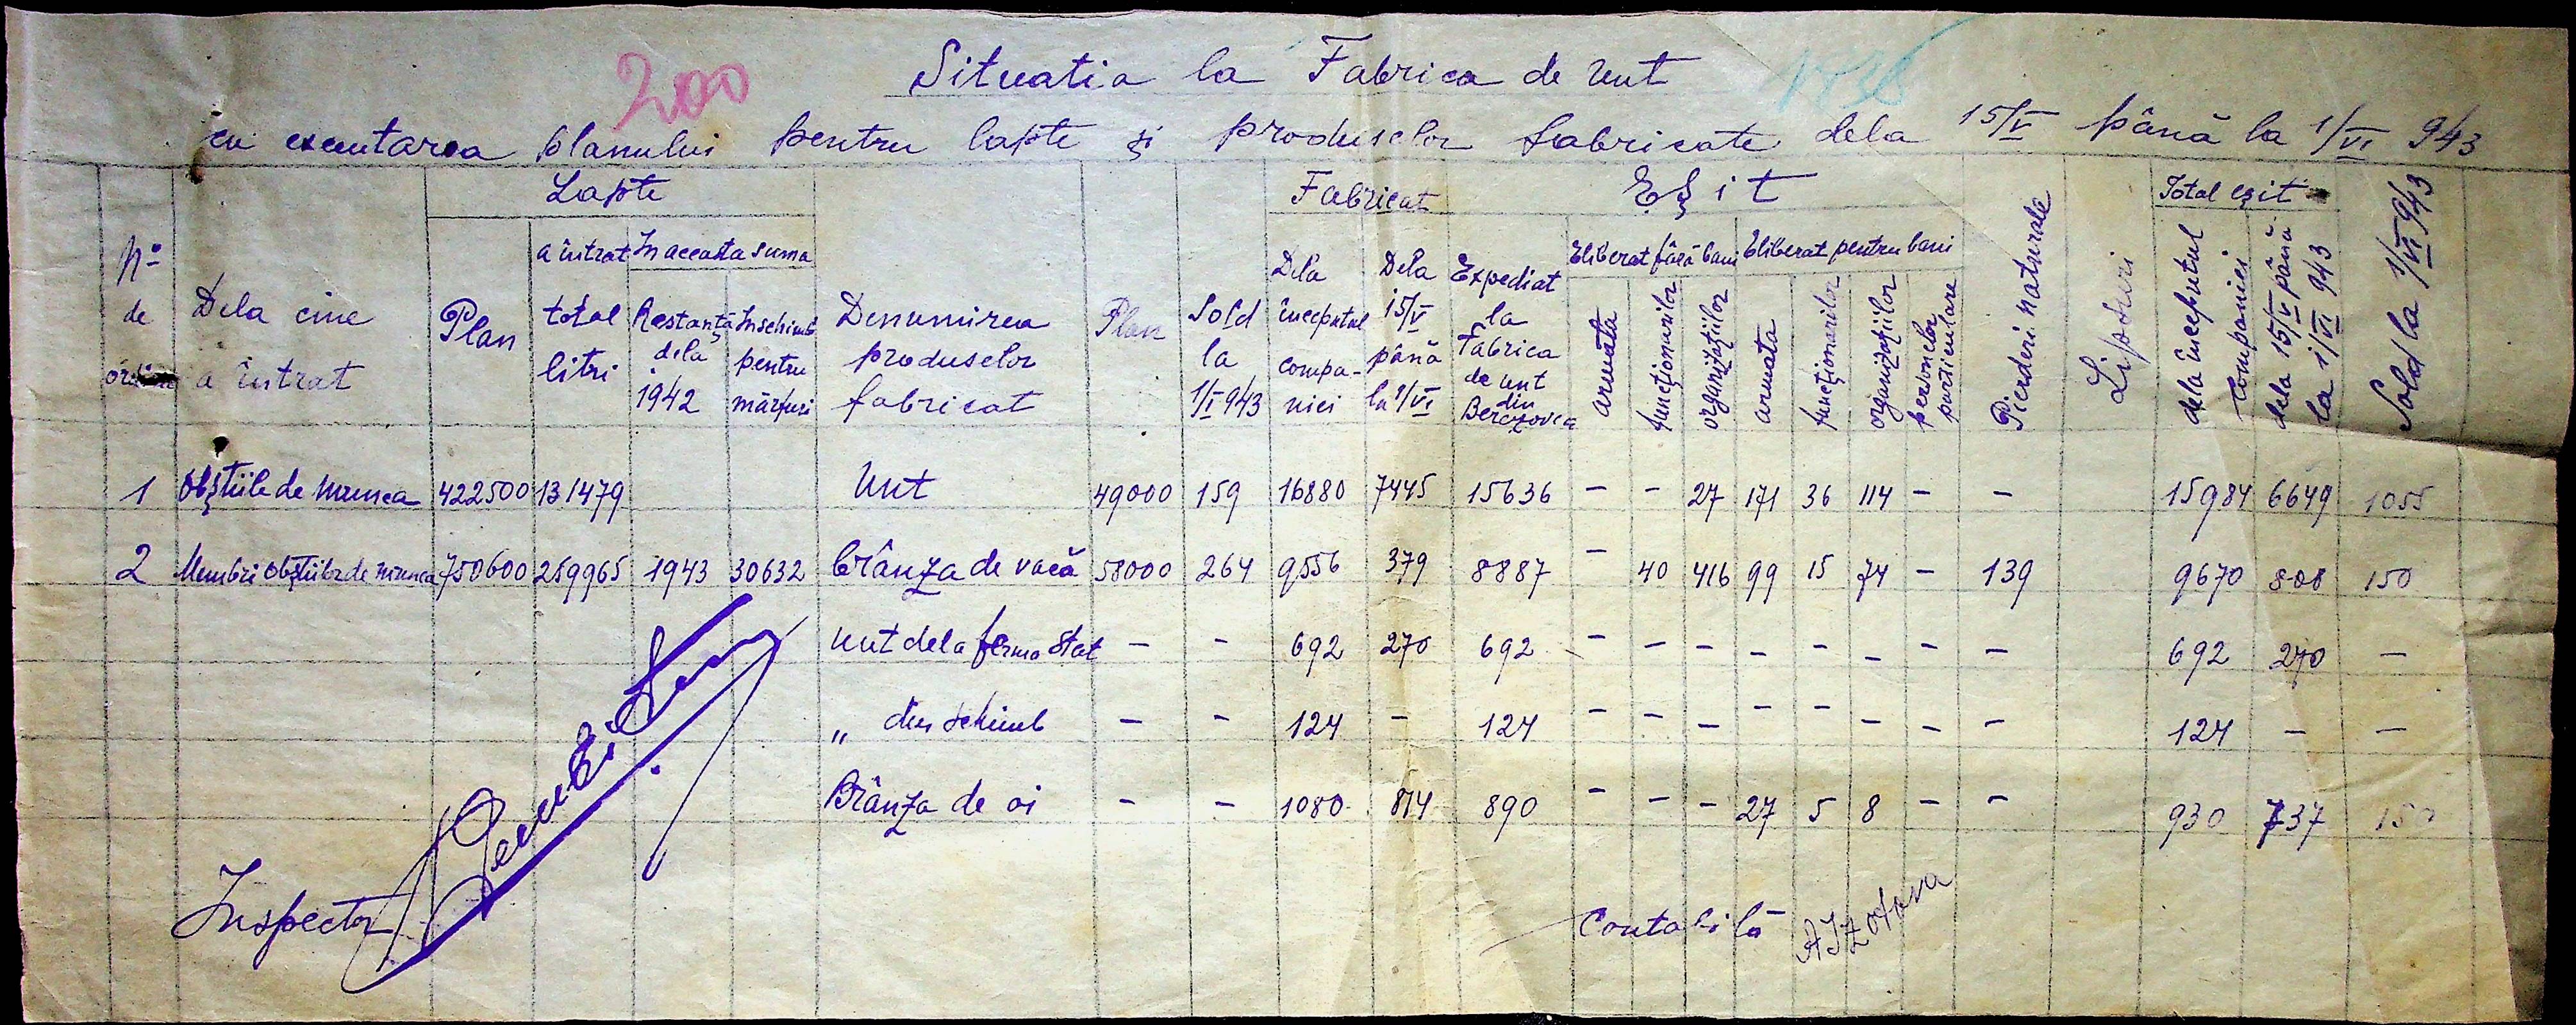 200
Situatia la Fabrica de Unt
1836
cu executarea planului pentru lapte și produselor fabricate dela 15/V până la 1/VI 943
No de ordine
Dela cine a întrat
Lapte
Plan
a întrat total litri
In aceasta suma
Restanță dela 1942
Inschimb pentru mărfuri
Denumirea produselor fabricat
Plan
Sold la 1/I 943
Fabricat
Dela începutul companiei
Dela 15/V până la 1/VI
Eșit
Expediat la Fabrica de unt din Berezovca
Eliberat fără bani
armata
funcționarilor
organizațiilor
Eliberat pentru bani
armata
funcționarilor
organizațiilor
personelor particulare
Pierderi naturale
Lipsuri
Total eșit
dela începutul companiei
dela 15/V până la 1/VI 943
Sold la 1/VI 943
1 Obștiile de munca 422500 131479 Unt 49000 159 16880 7445 15636 - - 27 171 36 114 - - 15984 6649 1055
2 Membri obștiilor de munca 750600 259965 1943 30632 Brânza de vacă 58000 264 9556 379 8887 - 40 416 99 15 74 - 139 9670 808 150
Unt dela ferma Stat - - 692 270 692 - - - - - - - - 692 270 -
„ din schimb - - 124 - 124 - - - - - - - - 124 - -
Brânza de oi - - 1080 814 890 - - - 27 5 8 - - 930 737 150
Inspector
Contabilă AIzotova